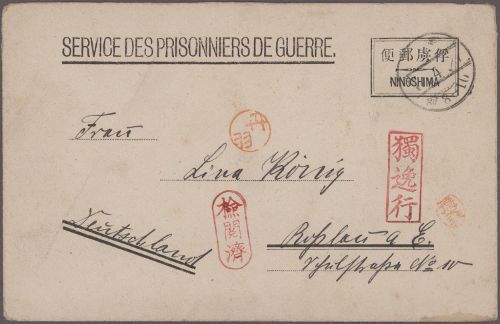 SERVICE DES PRISONNIERS DE GUERRE.
便郵虜俘
NINOSHIMA
Frau
Lina König
獨逸行
檢閲濟
Deutschland
Roßlau a E.
Schulstraße No 10